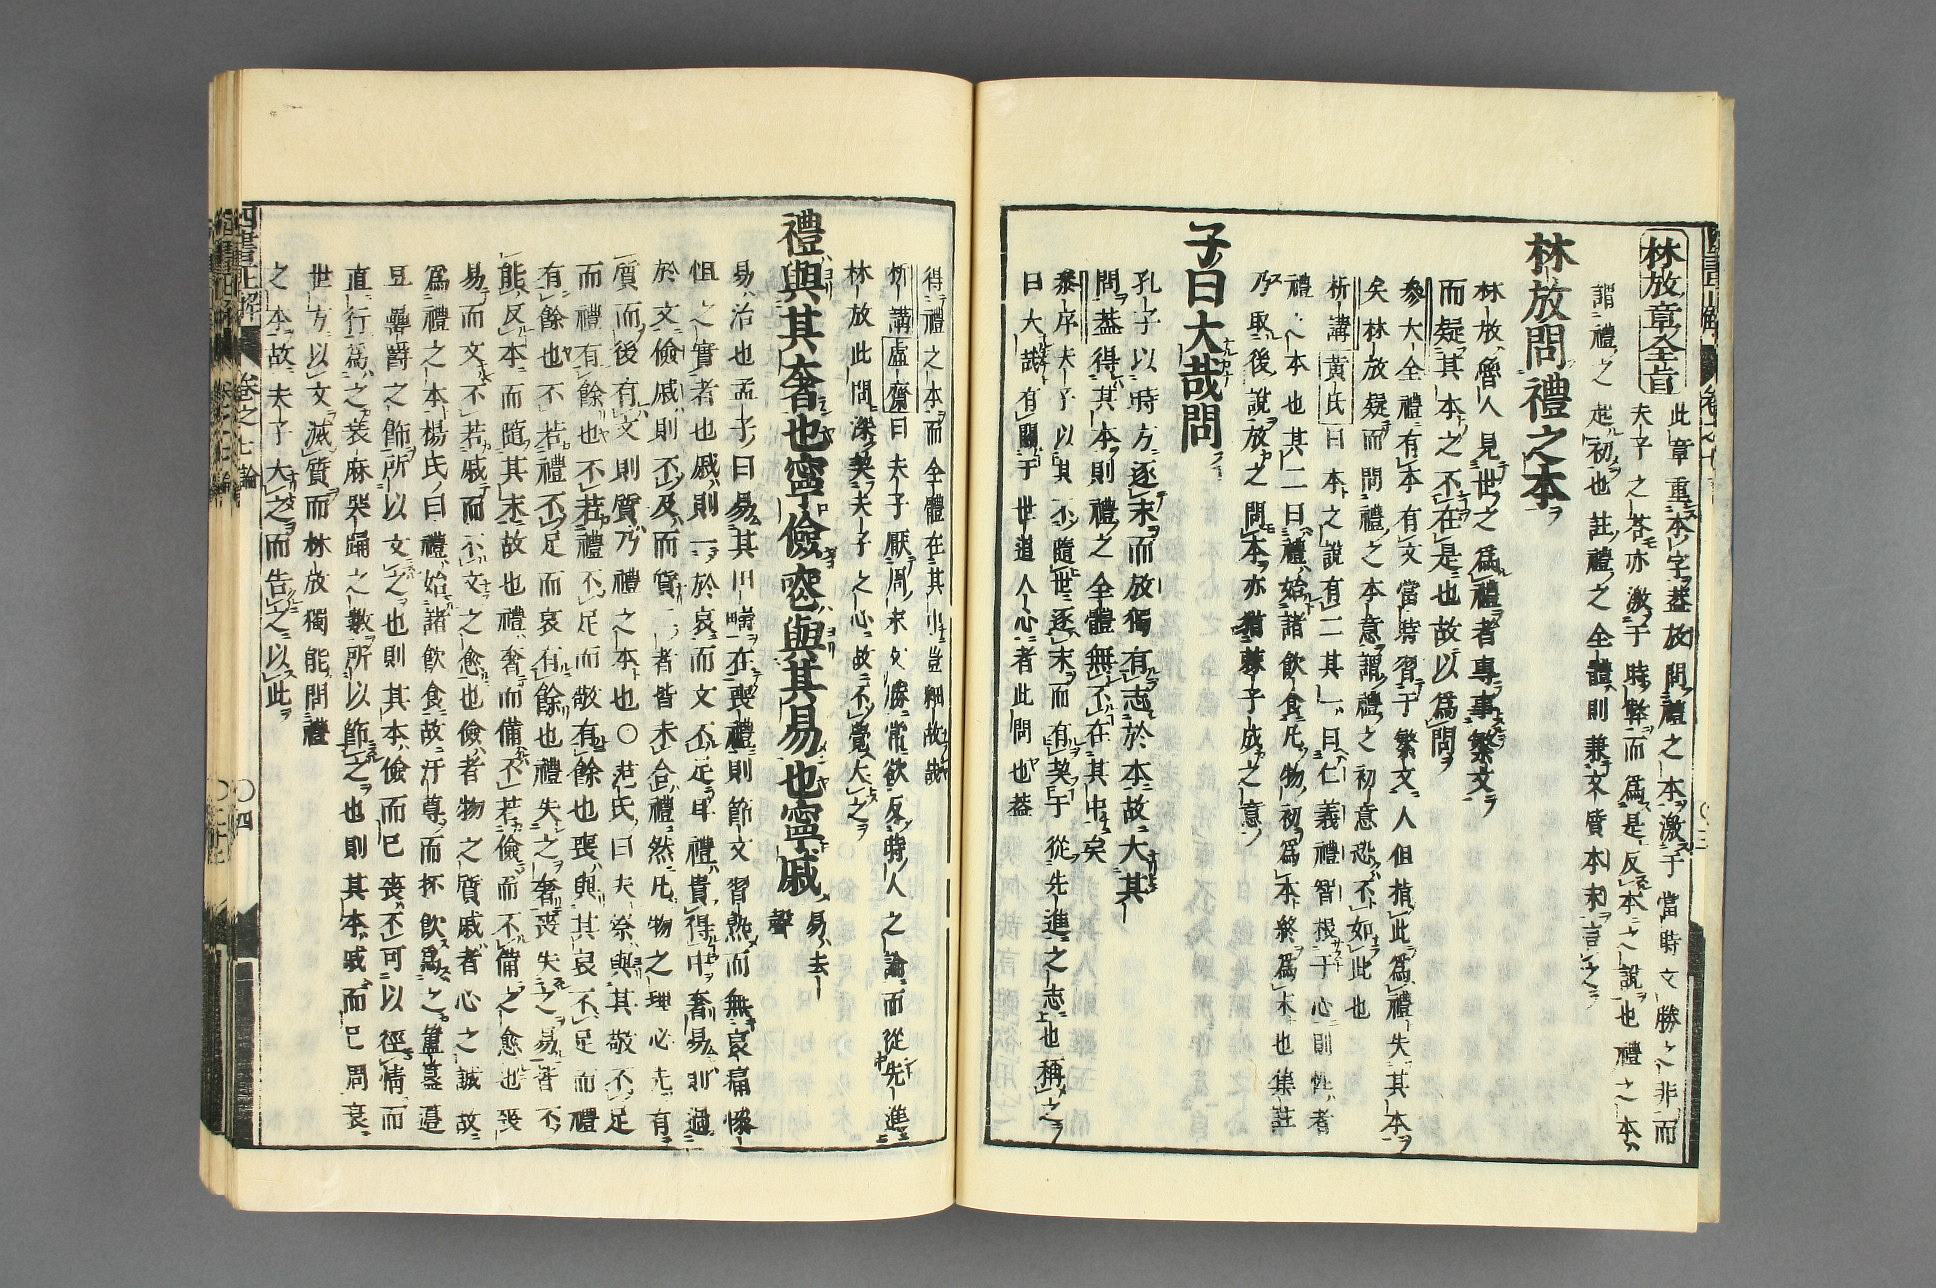 林放章全旨
此章重本字蓋放問禮之本激于當時文勝之非而
夫子之答亦激于時弊而為是反本之說也禮之本
謂禮之起初也註禮之全體則兼文質本末言之
林放問禮之本
林放魯人見世之為禮者專事繁文
而疑其本之不在是也故以為問
參大全禮有本有文當時習于繁文人但指此為禮失其本
矣林放疑而問禮之本意謂禮之初意恐不如此也
析講黃氏曰本之說有二其一曰仁義禮智根于心則性者
禮之本也其二曰禮始諸飲食凡物初為本終為末也集註
乃取後說放之問本亦猶棘子成之意
子曰大哉問
孔子以時方逐末而放獨有志於本故大其
問蓋得其本則禮之全體無不在其中矣
參序夫子以其不隨世逐末而有契于從先進之志也稱之
曰大哉有關于世道人心者此問也蓋
得禮之本而全體在其小豈細故哉
析講虛齋曰夫子厭周末文勝常欲反時人之論而從先進
林放此問深契夫子之心故不覺大之
禮與其奢也寧儉喪與其易也寧戚
易去
聲
易治也孟子曰易其田疇在喪禮則節文習熟而無哀痛慘
怛之實者也戚則一於哀而文不足耳禮貴得中奢易則過
於文儉戚則不及而質二者皆未合禮然凡物之理必先有
質而後有文則質乃禮之本也○范氏曰夫祭與其敬不足
而禮有餘也不若禮不足而敬有餘也喪與其哀不足而禮
有餘也不若禮不足而哀有餘也禮失之奢喪失之易皆不
能反本而隨其末故也禮奢而備不若儉而不備之愈也喪
易而文不若戚而不文之愈也儉者物之質戚者心之誠故
為禮之本楊氏曰禮始諸飲食故汙尊而抔飲為之簠簋籩
豆罍爵之飾所以文之也則其本儉而已喪不可以徑情而
直行為之衰麻哭踊之數所以節之也則其本戚而已周衰
世方以文滅質而林放獨能問禮
之本故夫子大之而告之以此
四書正解
卷之七論
○四